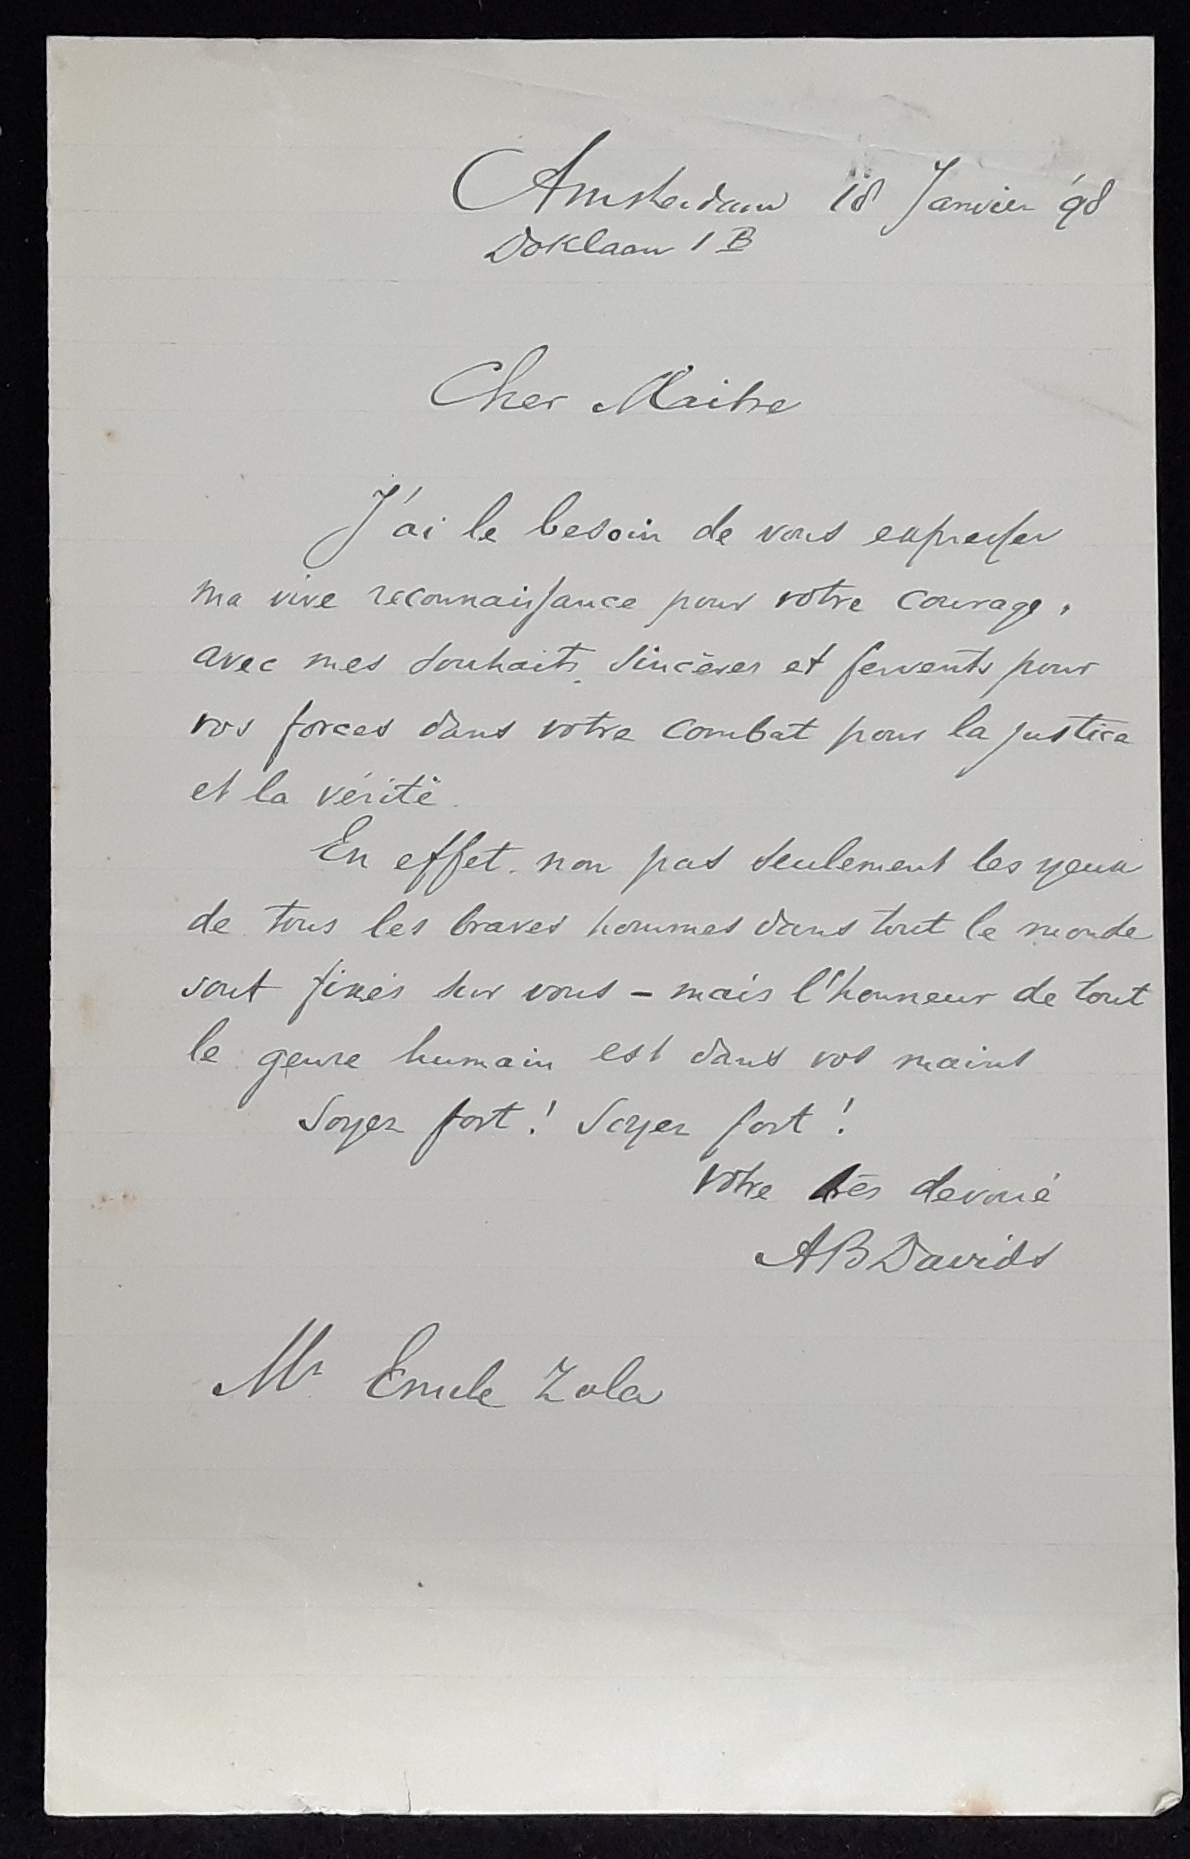 Amsterdam 18 Janvier '98
Doklaan 1 B
Cher Maitre
J'ai le besoin de vous expresser
ma vive reconnaissance pour votre courage,
avec mes souhaits sincères et fervents pour
vos forces dans votre combat pour la justice
et la vérité.
En effet. non pas seulement les yeux
de tous les braves hommes dans tout le monde
sont fixés sur vous – mais l'honneur de tout
le genre humain est dans vos mains
Soyez fort! Soyez fort!
Votre très devoué
AB Davids
Mr Emile Zola